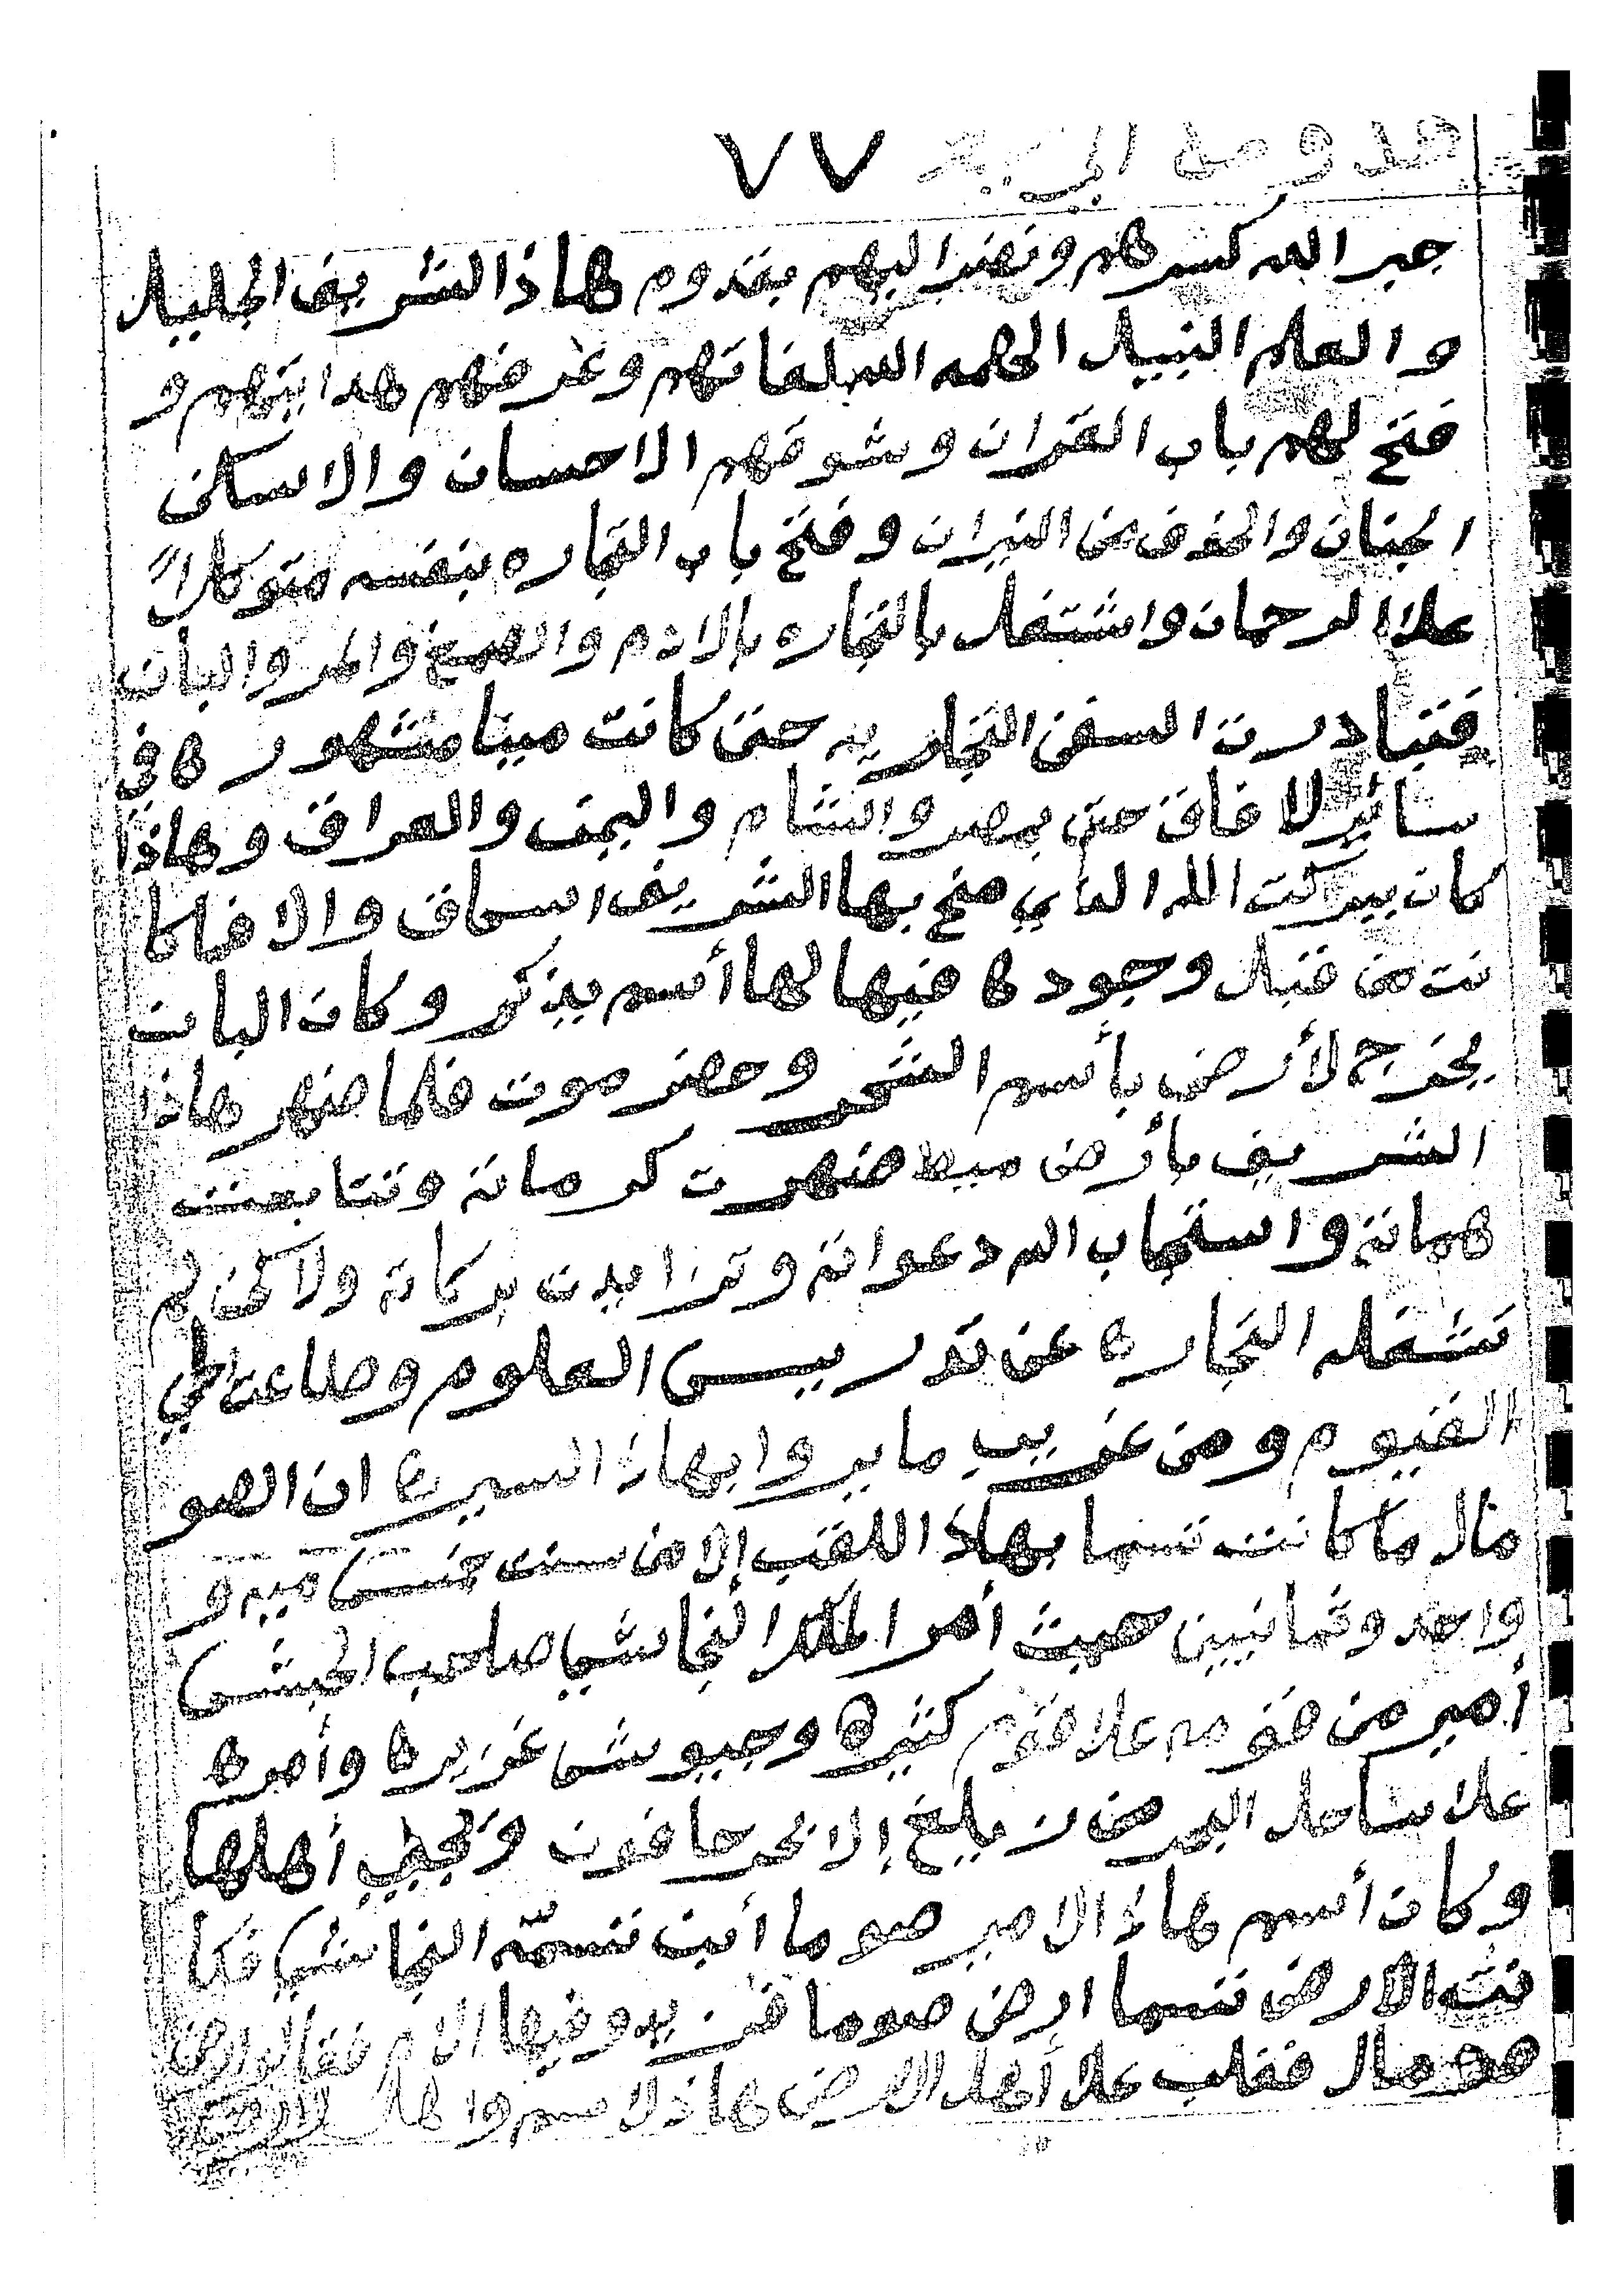 ٧٧
جبر الله كسرهم ونضر اليهم بقدوم هاذا الشريف الجليل
والعلم النبيل الهمه الله لغاتهم وعرفهم هدايتهم و
فتح لهم باب القران وشوقهم الا حسان والا سكن
الجنان والخوف عن النيران وفتح باب التجاره بنفسه متوكلاً
علا الرحمان واشتغل بالتجاره بالادم والصمغ والمر واللبان
فتبادرت السفن التجاريه حتى كانت مينا مشهوره في
سائر لافاق حتى بمصر والشام واليمن والعراق وهاذا
كان ببركت الله الذي منح بها الشريف اسحاق والا فما كا
نت من قبل وجوده فيها لها أسم يذكر وكان اللبان
يخرج لأرض بأسم الشحر وحضرموت فلما ضهر هاذا
الشريف بأرض ميط ضهرت كرماته وتتابعت
هماته واستجاب الله دعواته وتزايدت بركاته ولاكن لم
تشغله التجاره عن تدريس العلوم وطاعت الحي
القيوم ومن غريب ما يروا بهاذ السيره ان الصو
مال ما كانت تسما بهاذ اللقب إلا من سنت خمسماميه و
واحد وثمانيين حيث أمر الملك النجاشي صاحب الحبشا
أمير من قومه علا قوم كثيره وجيوشا غزيره وأمره
علا ساحل البحر من زيلع إلا بحر حافون ويجبي أهلها
وكان أسم هاذ الامير صوما أبن تسمّة النجاشي فكا
نت الارض تسما ارض صوما فزيدو فيها الام فقالو ارض
صومال فغلب علا أهل الارض هاذ لاسم